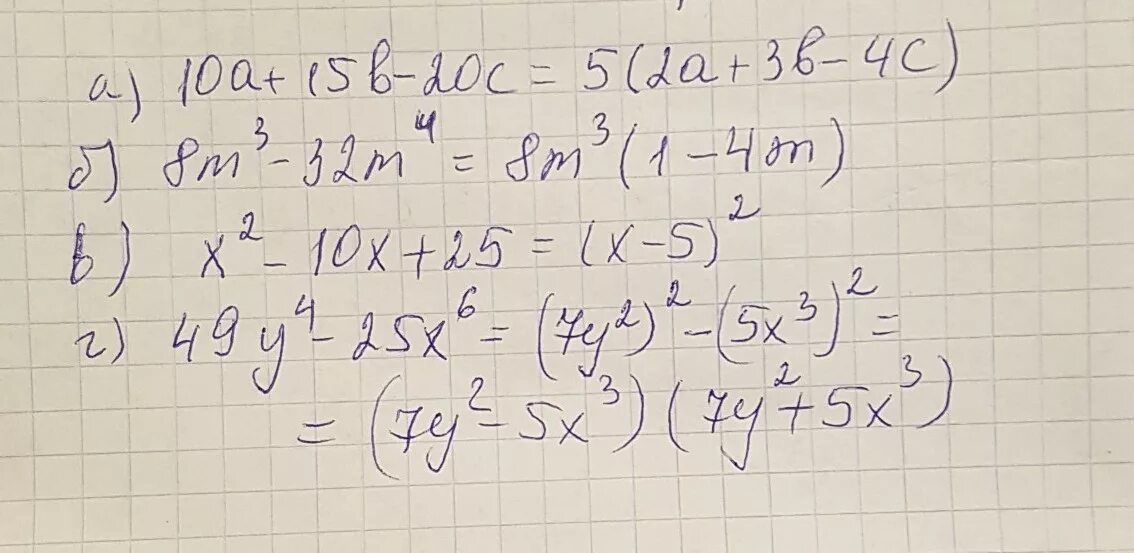 а) 10a + 15b - 20c = 5(2a + 3b - 4c)
б) 8m³ - 32m⁴ = 8m³(1 - 4m)
в) x² - 10x + 25 = (x - 5)²
г) 49y⁴ - 25x⁶ = (7y²)² - (5x³)² =
= (7y² - 5x³)(7y² + 5x³)